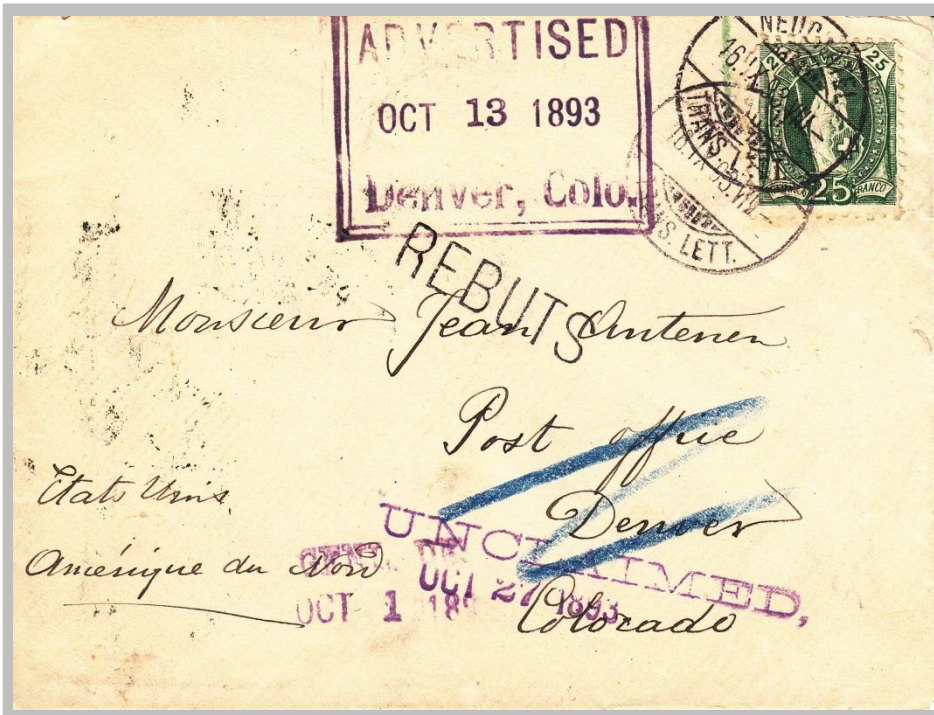 ADVERTISED
OCT 13 1893
Denver, Colo.
25
25
25
FRANCO
TRANS. LETT.
REBUTS
Monsieur Jean Antenen
Post office
Denver
Colorado
Etats Unis
Amérique du Nord
UNCLAIMED,
OCT 27 1893
OCT 1